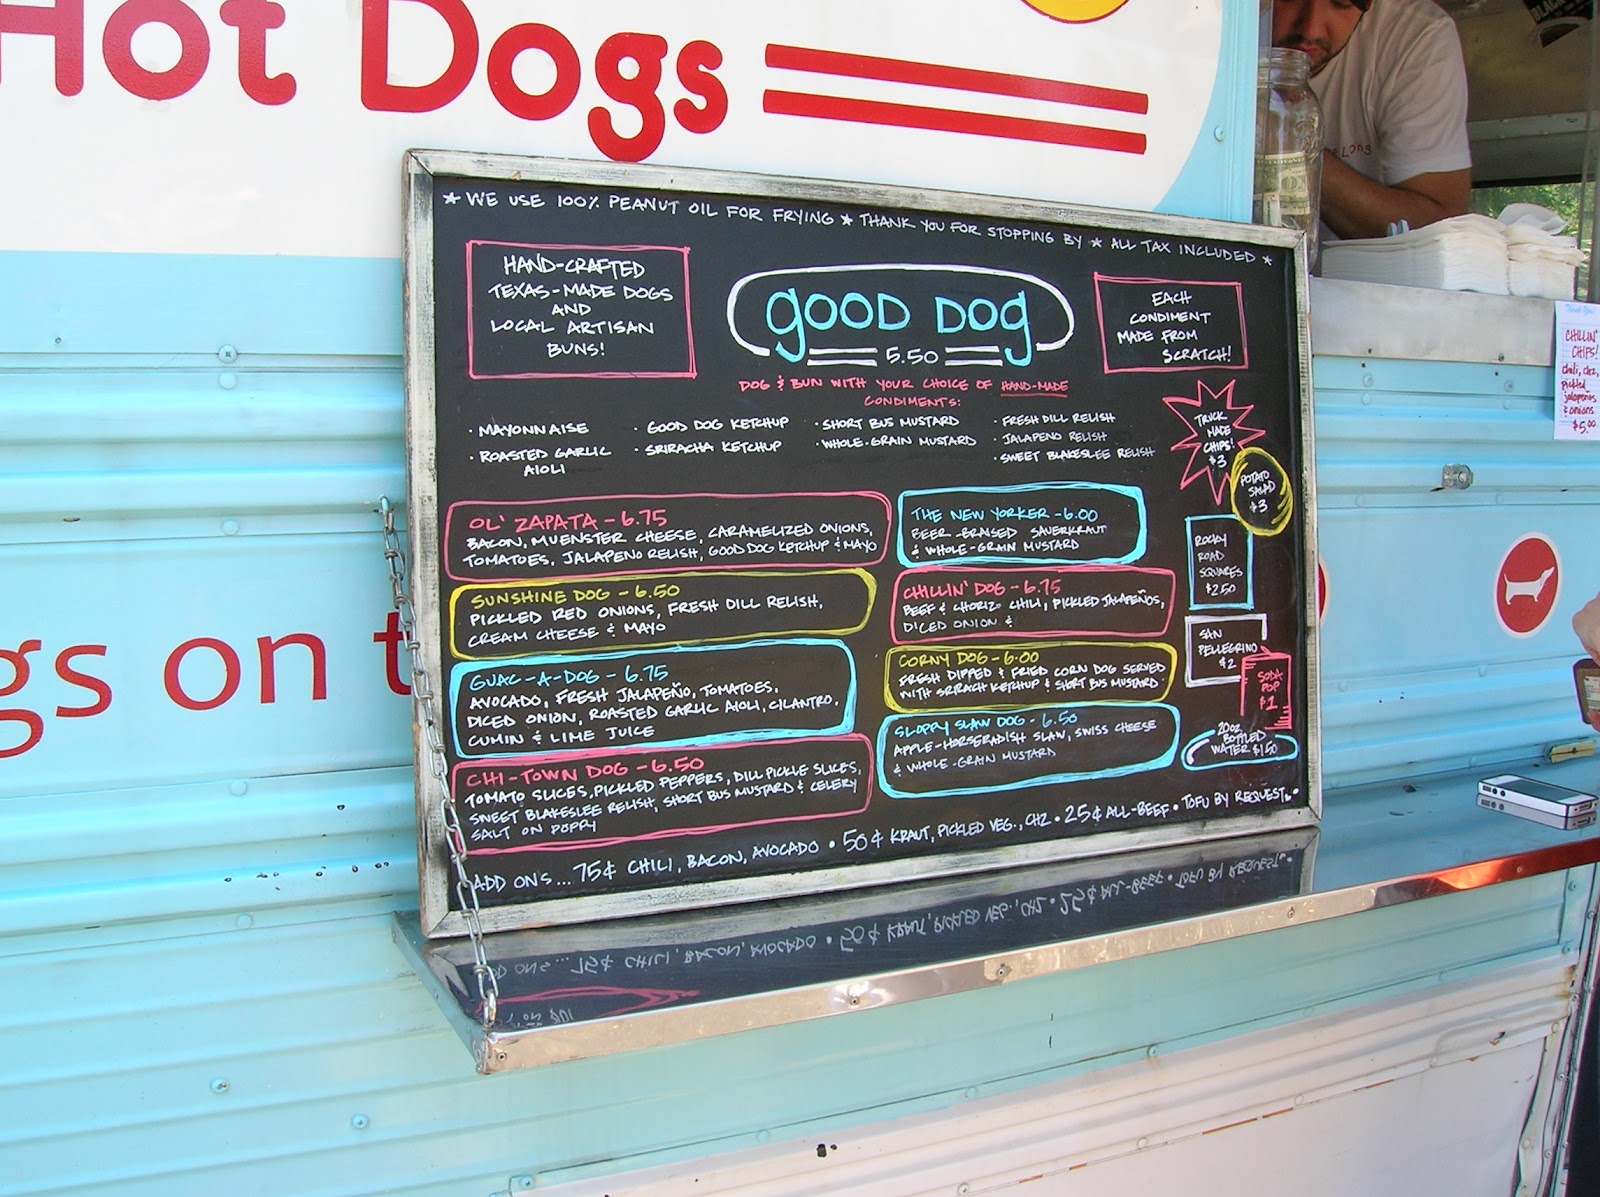 Hot Dogs
★ WE USE 100% PEANUT OIL FOR FRYING ★ THANK YOU FOR STOPPING BY ★ ALL TAX INCLUDED ★
HAND-CRAFTED
TEXAS-MADE DOGS
AND
LOCAL ARTISAN
BUNS!
GOOD DOG
5.50
EACH
CONDIMENT
MADE FROM
SCRATCH!
DOG & BUN WITH YOUR CHOICE OF HAND-MADE
CONDIMENTS:
· MAYONNAISE
· ROASTED GARLIC
AIOLI
· GOOD DOG KETCHUP
· SRIRACHA KETCHUP
· SHORT BUS MUSTARD
· WHOLE-GRAIN MUSTARD
· FRESH DILL RELISH
· JALAPENO RELISH
· SWEET BLAKESLEE RELISH
TRUCK
MADE
CHIPS!
$3
POTATO
SALAD
$3
OL' ZAPATA - 6.75
BACON, MUENSTER CHEESE, CARAMELIZED ONIONS,
TOMATOES, JALAPENO RELISH, GOOD DOG KETCHUP & MAYO
SUNSHINE DOG - 6.50
PICKLED RED ONIONS, FRESH DILL RELISH,
CREAM CHEESE & MAYO
GUAC-A-DOG - 6.75
AVOCADO, FRESH JALAPEÑO, TOMATOES,
DICED ONION, ROASTED GARLIC AIOLI, CILANTRO,
CUMIN & LIME JUICE
CHI-TOWN DOG - 6.50
TOMATO SLICES, PICKLED PEPPERS, DILL PICKLE SLICES,
SWEET BLAKESLEE RELISH, SHORT BUS MUSTARD & CELERY
SALT ON POPPY
THE NEW YORKER - 6.00
BEER-BRAISED SAUERKRAUT
& WHOLE-GRAIN MUSTARD
CHILLIN' DOG - 6.75
BEEF & CHORIZO CHILI, PICKLED JALAPEÑOS,
DICED ONION &
CORNY DOG - 6.00
FRESH DIPPED & FRIED CORN DOG SERVED
WITH SRIRACH KETCHUP & SHORT BUS MUSTARD.
SLOPPY SLAW DOG - 6.50
APPLE-HORSERADISH SLAW, SWISS CHEESE
& WHOLE-GRAIN MUSTARD
ROCKY
ROAD
SQUARES
$2.50
SAN
PELLEGRINO
$2
SODA
POP
$1
20OZ
BOTTLED
WATER $1.50
ADD ONS... 75¢ CHILI, BACON, AVOCADO • 50¢ KRAUT, PICKLED VEG., CHZ • 25¢ ALL-BEEF • TOFU BY REQUEST •
Thank You!
CHILLIN'
CHIPS!
Chili, chz,
pickled
jalapeños
& onions
$5.00
gs on t